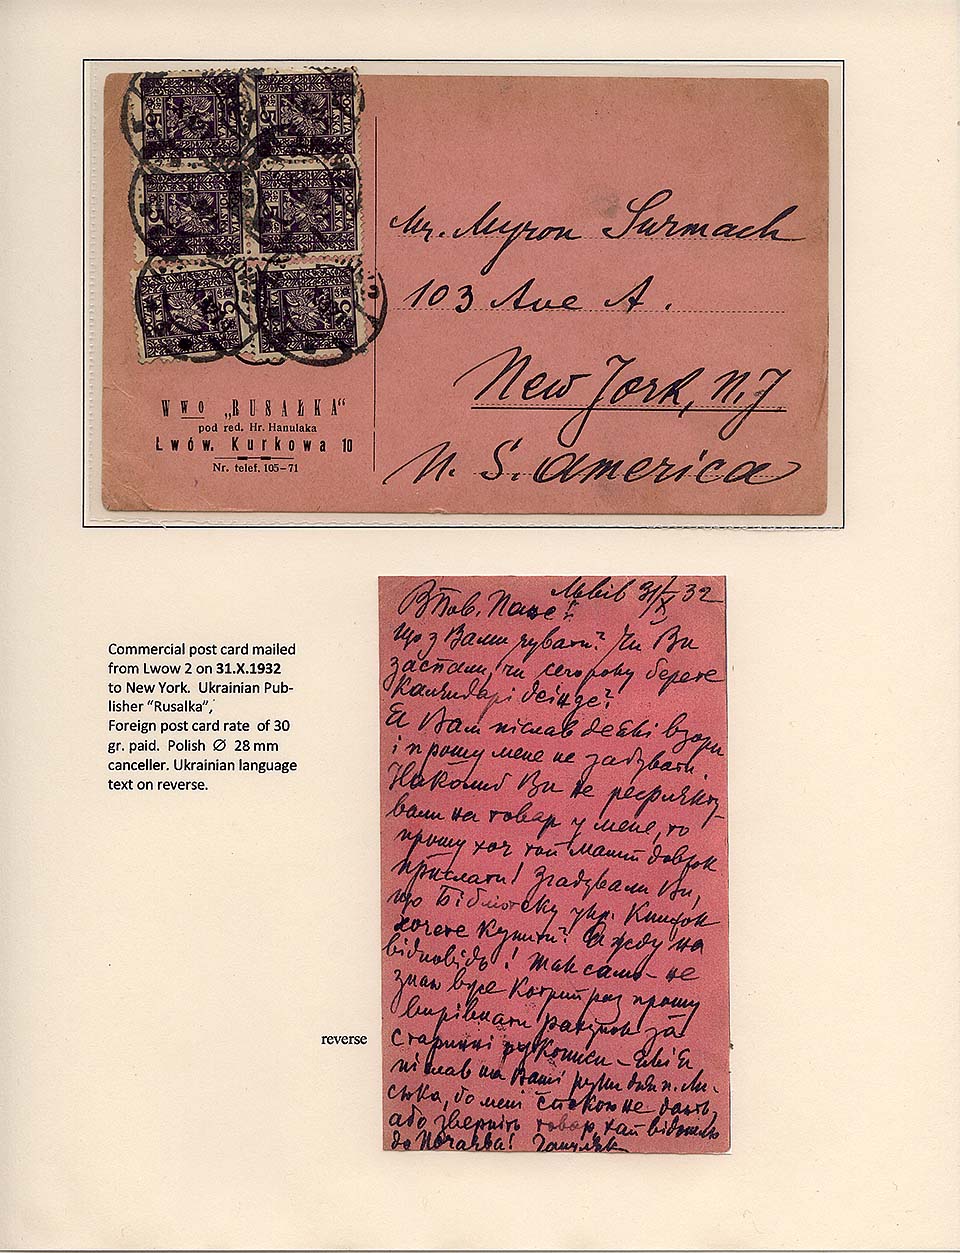 Mr. Myron Surmach
103 Ave A.
New York, N.J
U. S. America
WWO „RUSAŁKA“
pod red. Hr. Hanulaka
Lwów. Kurkowa 10
Nr. telef. 105-71
Commercial post card mailed
from Lwow 2 on 31.X.1932
to New York. Ukrainian Pub-
lisher “Rusalka”,
Foreign post card rate of 30
gr. paid. Polish Ø 28 mm
canceller. Ukrainian language
text on reverse.
reverse
Львів 31/X 32
ВПов. Пане!
Що з Вами чувати? Чи Ви
застали, чи сегороку берете
Календарі деінде?
Я Вам післав деякі взори
і прошу мене не забувати.
Наколиб Ви не рефлекту-
вали на товар у мене, то
прошу хоч той малий довжок
прислати! Згадували Ви,
що Бібліотеку укр. Книжок
хочете купити? Я жду на
відповідь! Так само - не
знаю вже Котрий раз прошу
вирівнати рахунок за
старинні рукописи - які я
післав на Ваші руки для п.
бо мені спокою не дають,
або зверніть товар, хай відошлю
до Почаєва! Гануляк